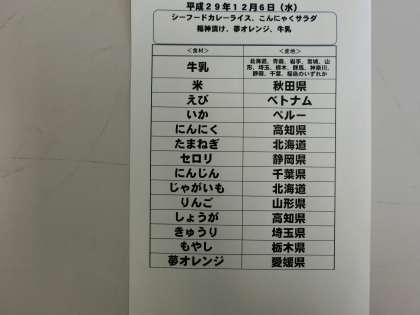 平成29年12月6日（水）
シーフードカレーライス、こんにゃくサラダ
福神漬け、夢オレンジ、牛乳
＜食材＞ ＜産地＞
牛乳 北海道、青森、岩手、宮城、山形、埼玉、栃木、群馬、神奈川、静岡、千葉、福島のいずれか
米 秋田県
えび ベトナム
いか ペルー
にんにく 高知県
たまねぎ 北海道
セロリ 静岡県
にんじん 千葉県
じゃがいも 北海道
りんご 山形県
しょうが 高知県
きゅうり 埼玉県
もやし 栃木県
夢オレンジ 愛媛県